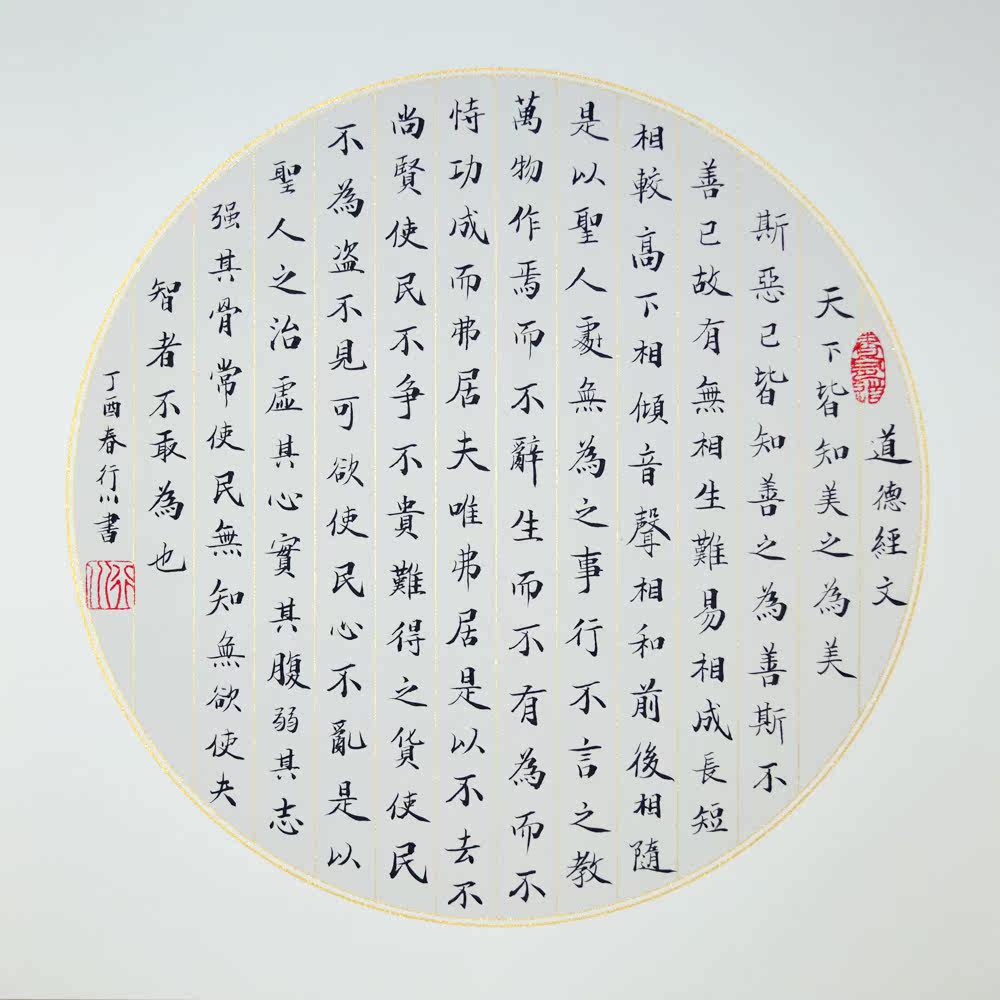 道德經文
天下皆知美之為美
斯惡已皆知善之為善斯不
善已故有無相生難易相成長短
相較高下相傾音聲相和前後相隨
是以聖人處無為之事行不言之教
萬物作焉而不辭生而不有為而不
恃功成而弗居夫唯弗居是以不去不
尚賢使民不争不貴難得之貨使民
不為盗不見可欲使民心不亂是以
聖人之治虛其心實其腹弱其志
强其骨常使民無知無欲使夫
智者不敢為也
丁酉春行川書
行川